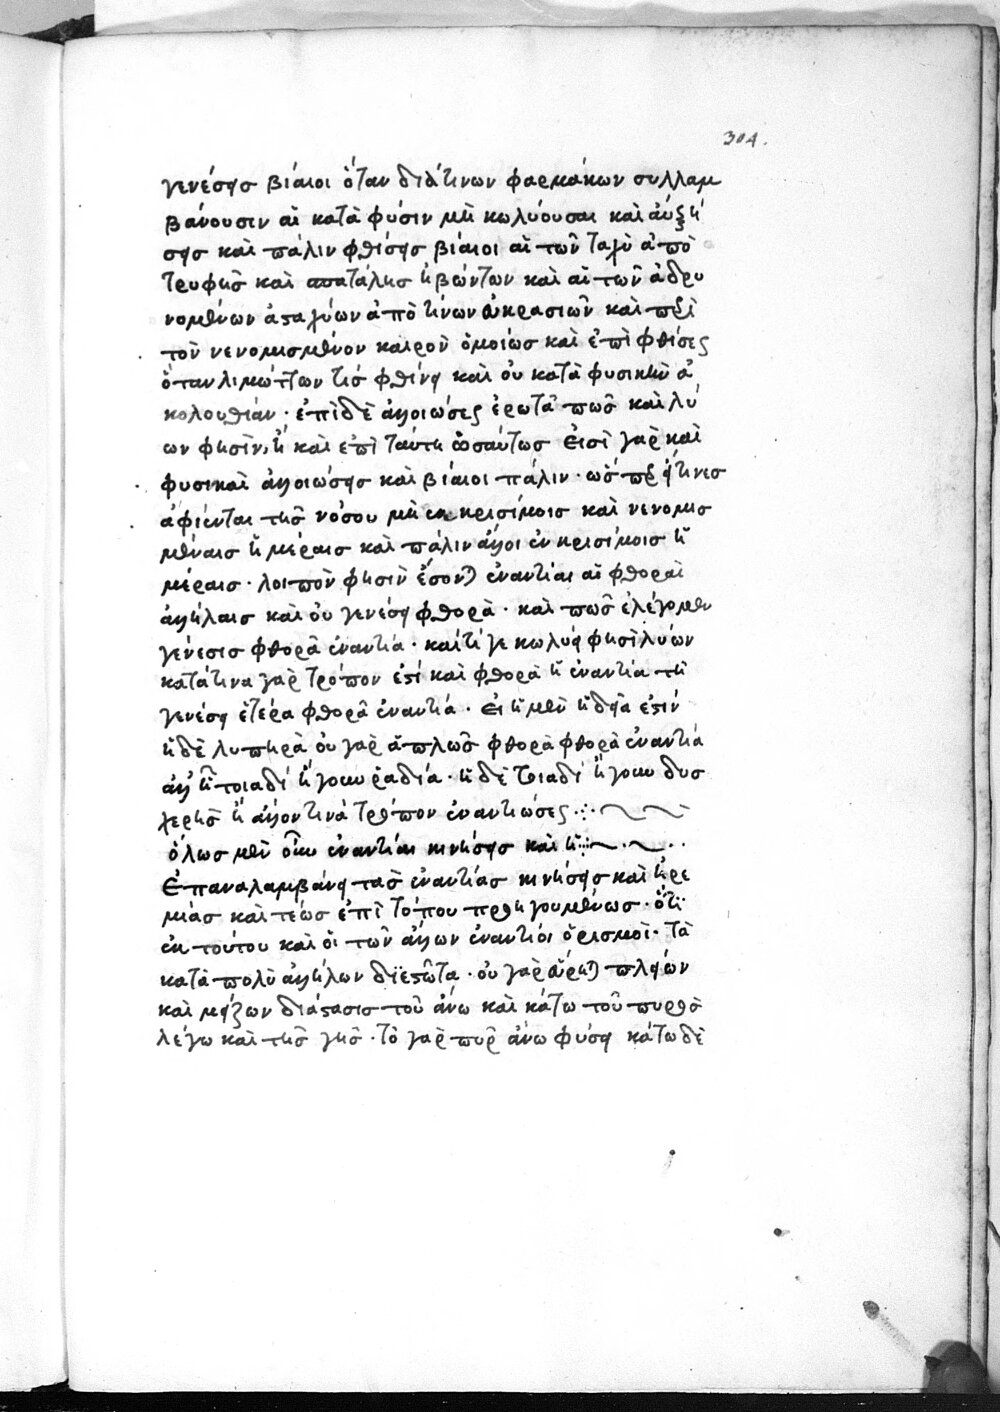 304.
γενέσεις βίαιοι ὅταν διά τινων φαρμάκων συλλαμ
βάνουσιν αἱ κατὰ φύσιν μὴ κωλύουσαι καὶ αὐξή
σεις καὶ πάλιν φθίσεις βίαιοι αἱ τῶν ταχὺ ἀπὸ
τρυφῆς καὶ σπατάλης ἡβώντων καὶ αἱ τῶν ἁδρυ
νομένων ἀσταχύων ἀπό τινων εὐκρασιῶν καὶ περὶ
τὸν νενομισμένον καιρὸν ὁμοίως καὶ ἐπὶ φθίσεως
ὅταν λιμώττων τίς φθίνει καὶ οὐ κατὰ φυσικὴν ἀ
κολουθίαν · ἐπὶ δὲ ἀλλοιώσεως ἐρωτᾶ πῶς καὶ λύ
ων φησὶν, ἢ καὶ ἐπὶ ταύτη ὡσαύτως εἰσὶ γὰρ καὶ
φυσικαὶ ἀλλοιώσεις καὶ βίαιοι πάλιν · ὥσπερ εἴ τινες
ἀφίενται τῆς νόσου μὴ ἐν κρισίμοις καὶ νενομισ
μέναις ἡμέραις καὶ πάλιν ἄλλοι ἐν κρισίμοις ἡ
μέραις · λοιπὸν φησὶν ἔσονται ἐναντίαι αἱ φθοραὶ
ἀλλήλαις καὶ οὐ γενέσει φθορὰ · καὶ πῶς ἐλέγομεν
γένεσις φθορᾶ ἐναντία · καίτί γε κωλύει φησὶ λύων
κατά τινα γὰρ τρόπον ἐστὶ καὶ φθορὰ ἡ ἐναντία τῆ
γενέσει ἑτέρα φθορᾶ ἐναντία · εἰ ἡ μὲν ἡδεῖα ἐστὶν
ἡ δὲ λυπηρὰ οὐ γὰρ ἁπλῶς φθορὰ φθορᾶ ἐναντία
ἀλλ' ἢ τοιαδὶ ἤγουν ῥαδία · ἡ δὲ τοιαδὶ ἤγουν δυσ
χερὴς ἢ ἄλλον τινὰ τρόπον ἐναντιώσεως ·:·
ὅλως μὲν οὖν ἐναντίαι κινήσεις καὶ ἠ:·
Ἐπαναλαμβάνει τὰς ἐναντίας κινήσεις καὶ ἠρε
μίας καὶ τέως ἐπὶ τόπου προηγουμένως · ὅτι
ἐκ τούτου καὶ οἱ τῶν ἄλλων ἐναντίοι ὁρισμοὶ · τὰ
κατὰ πολὺ ἀλλήλων διεστῶτα · οὐ γὰρ εὕρηται πλείων
καὶ μείζων διάστασις τοῦ ἄνω καὶ κάτω τοῦ πυρὸς
λέγω καὶ τῆς γῆς · τὸ γὰρ πῦρ ἄνω φύσει κάτω δὲ